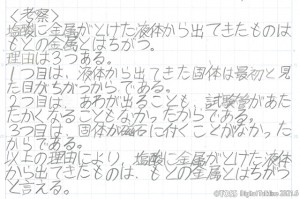 <考察>
塩酸に金属がとけた液体から出てきたものは
もとの金属とはちがう。
理由は3つある。
1つ目は、液体から出てきた固体は最初と見
た目がちがうからである。
2つ目は、あわが出ることも、試験管があた
たかくなることもなかったからである。
3つ目は、固体が磁石に付くことがなかった
からである。
以上の理由により、塩酸に金属がとけた液体
から出てきたものは、もとの金属とはちがう
と言える。